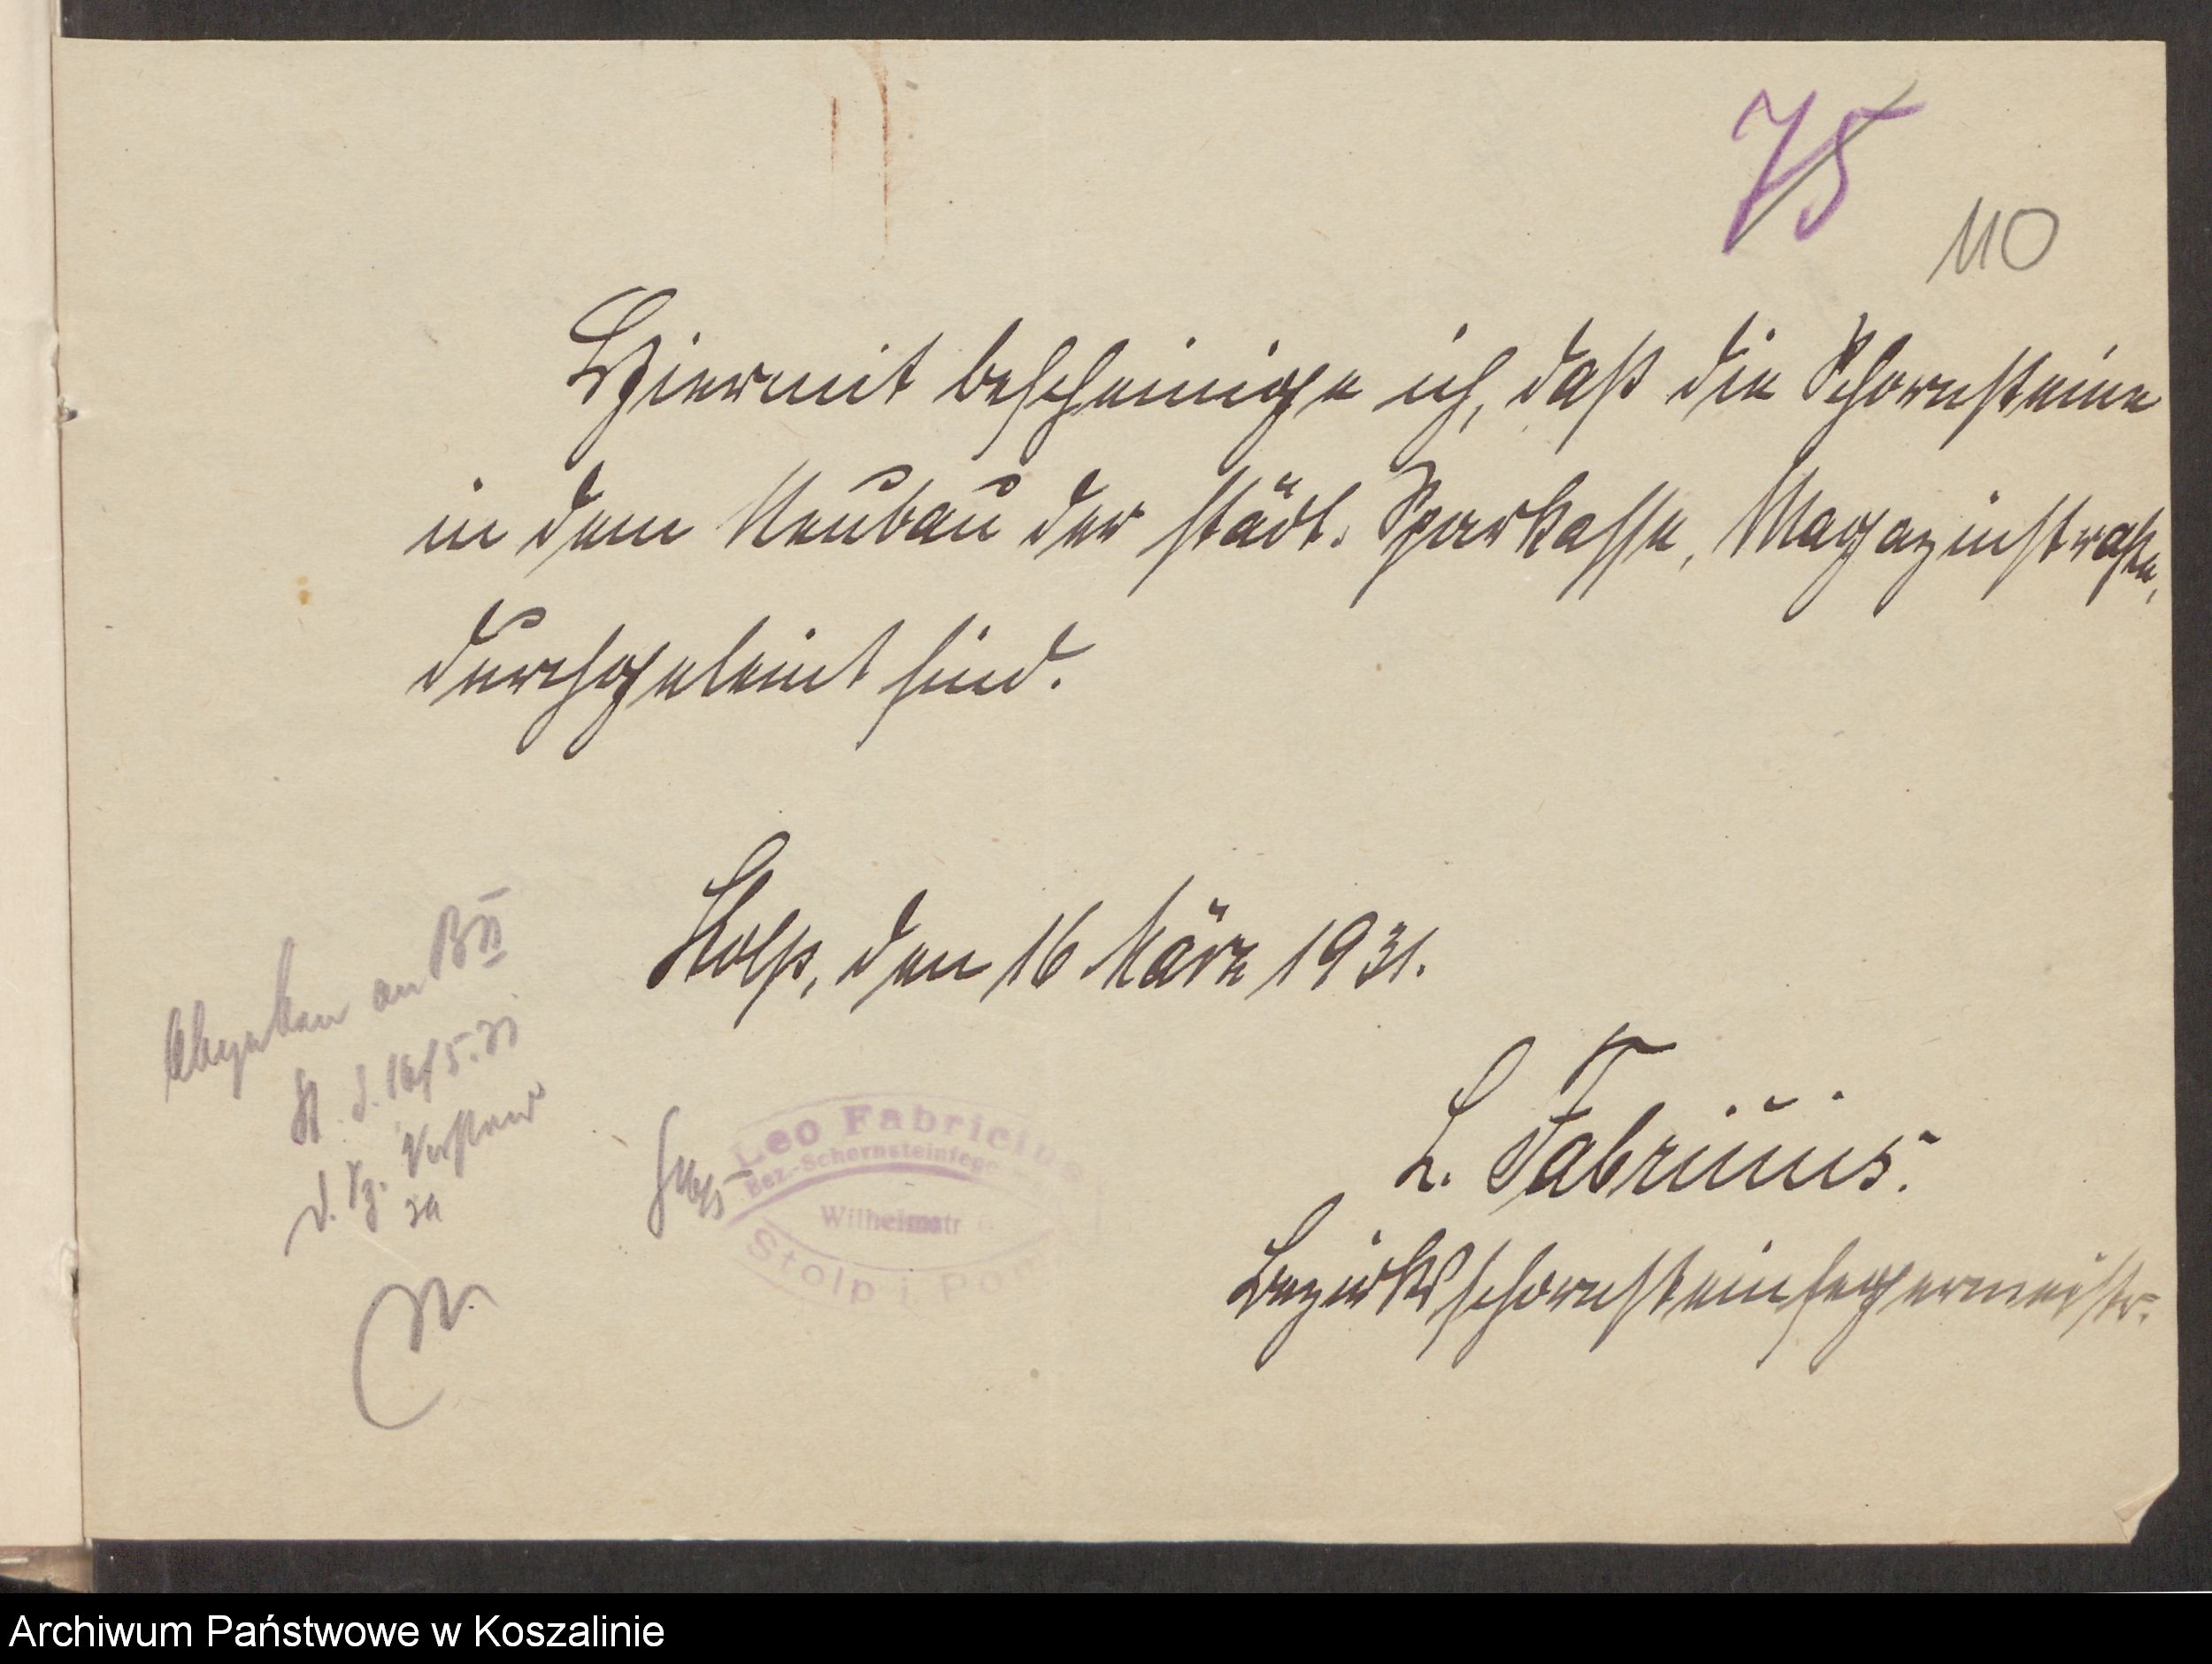 75
110
Hiermit bescheinige ich, daß die Schornsteine
in dem Neubau der städt. Sparkasse, Magazinstraße,
durchgeleint sind.
Stolp, den 16 März 1931.
Abgeben an B II
L. Fabricius.
Bezirksschornsteinfegermeister.
Leo Fabricius
Bez.-Schornsteinfege
Wilhelmstr
Stolp i. Pom
Archiwum Państwowe w Koszalinie